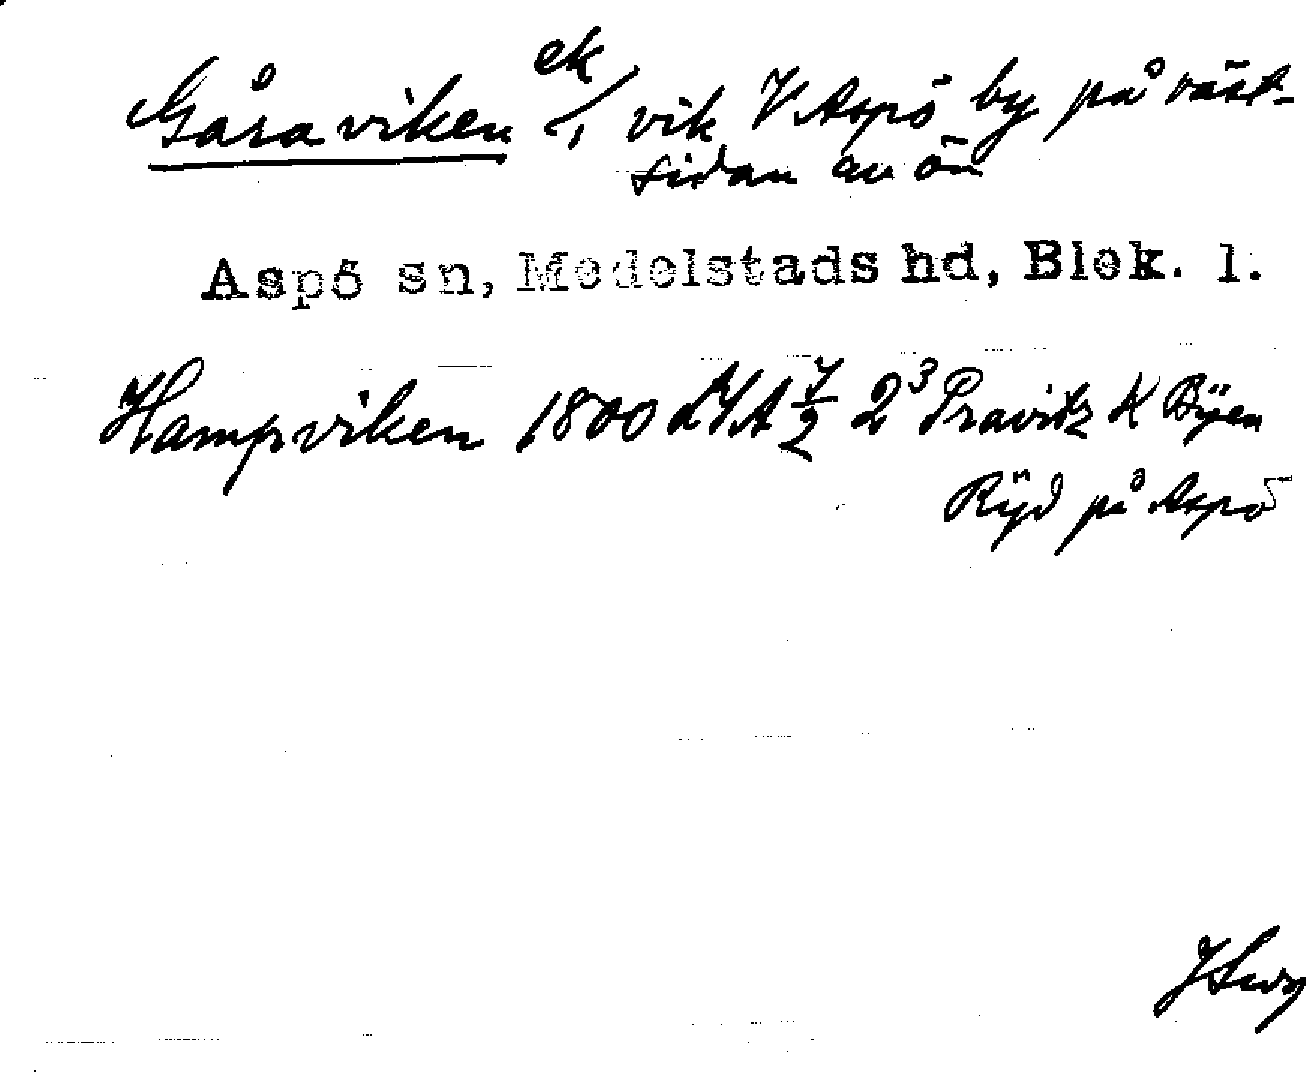 Gåsaviken ek/, vik V Aspö by på väst-
sidan av ön
Aspö sn, Medelstads hd, Blek. l.
Hampviken 1800 LSA 7/2 2³ Pravitz K Byen
Ryd på Aspö